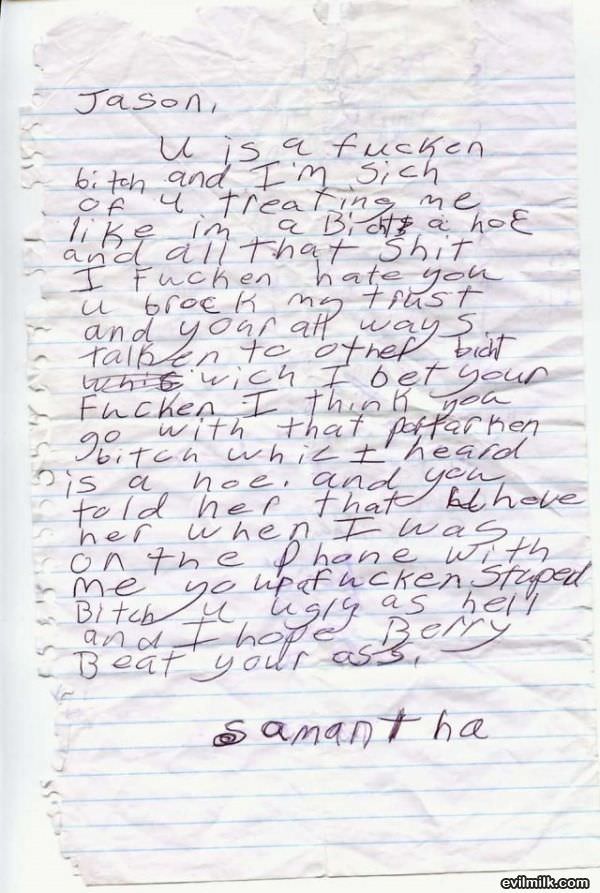 Jason,
U is a fucken
bitch and I'm Sich
of u treating me
like im a a hoE
and all that Shit
I Fucken hate you
u broek my trust
and your all ways
talken to other bicht
wich I bet your
Fucken I think you
go with that
bitch whic I heard
is a hoe. and you
told her that hove
her when I was
on the Phone with
me you fucken Stuped
Bitch u ugly as hell
and I hope Berry
Beat your ass.
Samantha
evilmilk.com